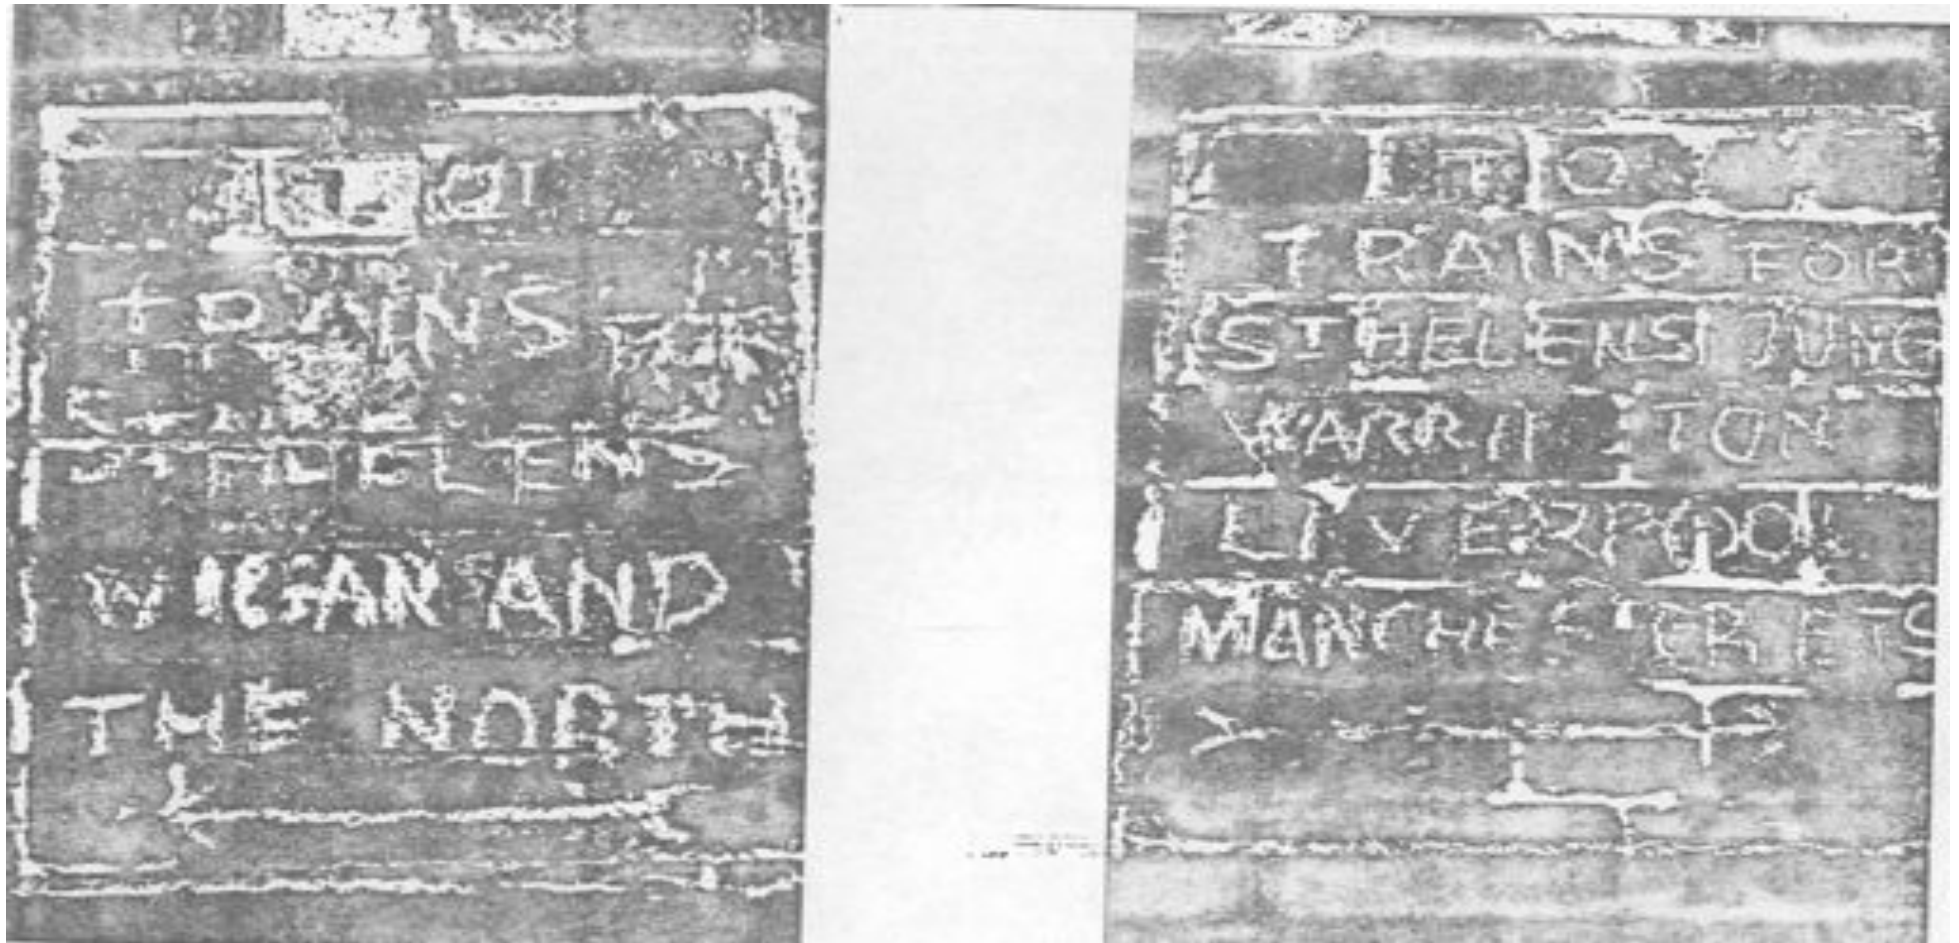 TO
TRAINS FOR
ST HELENS
WIGAN AND
THE NORTH
TO
TRAINS FOR
ST HELENS JUNC
WARRI TON
LIVERPOOL
MANCHESTER ETS